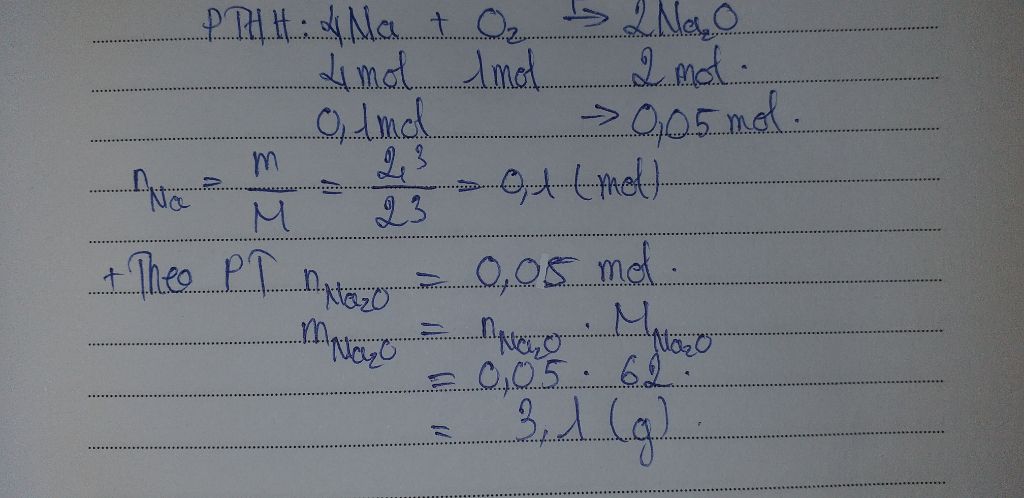 PTHH: 4Na + O₂ → 2Na₂O
4 mol 1mol 2 mol.
0,1mol → 0,05 mol.
n_Na = m/M = 2,3/23 = 0,1 (mol)
+ Theo PT n_Na₂O = 0,05 mol.
m_Na₂O = n_Na₂O . M_Na₂O
= 0,05 . 62.
= 3,1 (g).